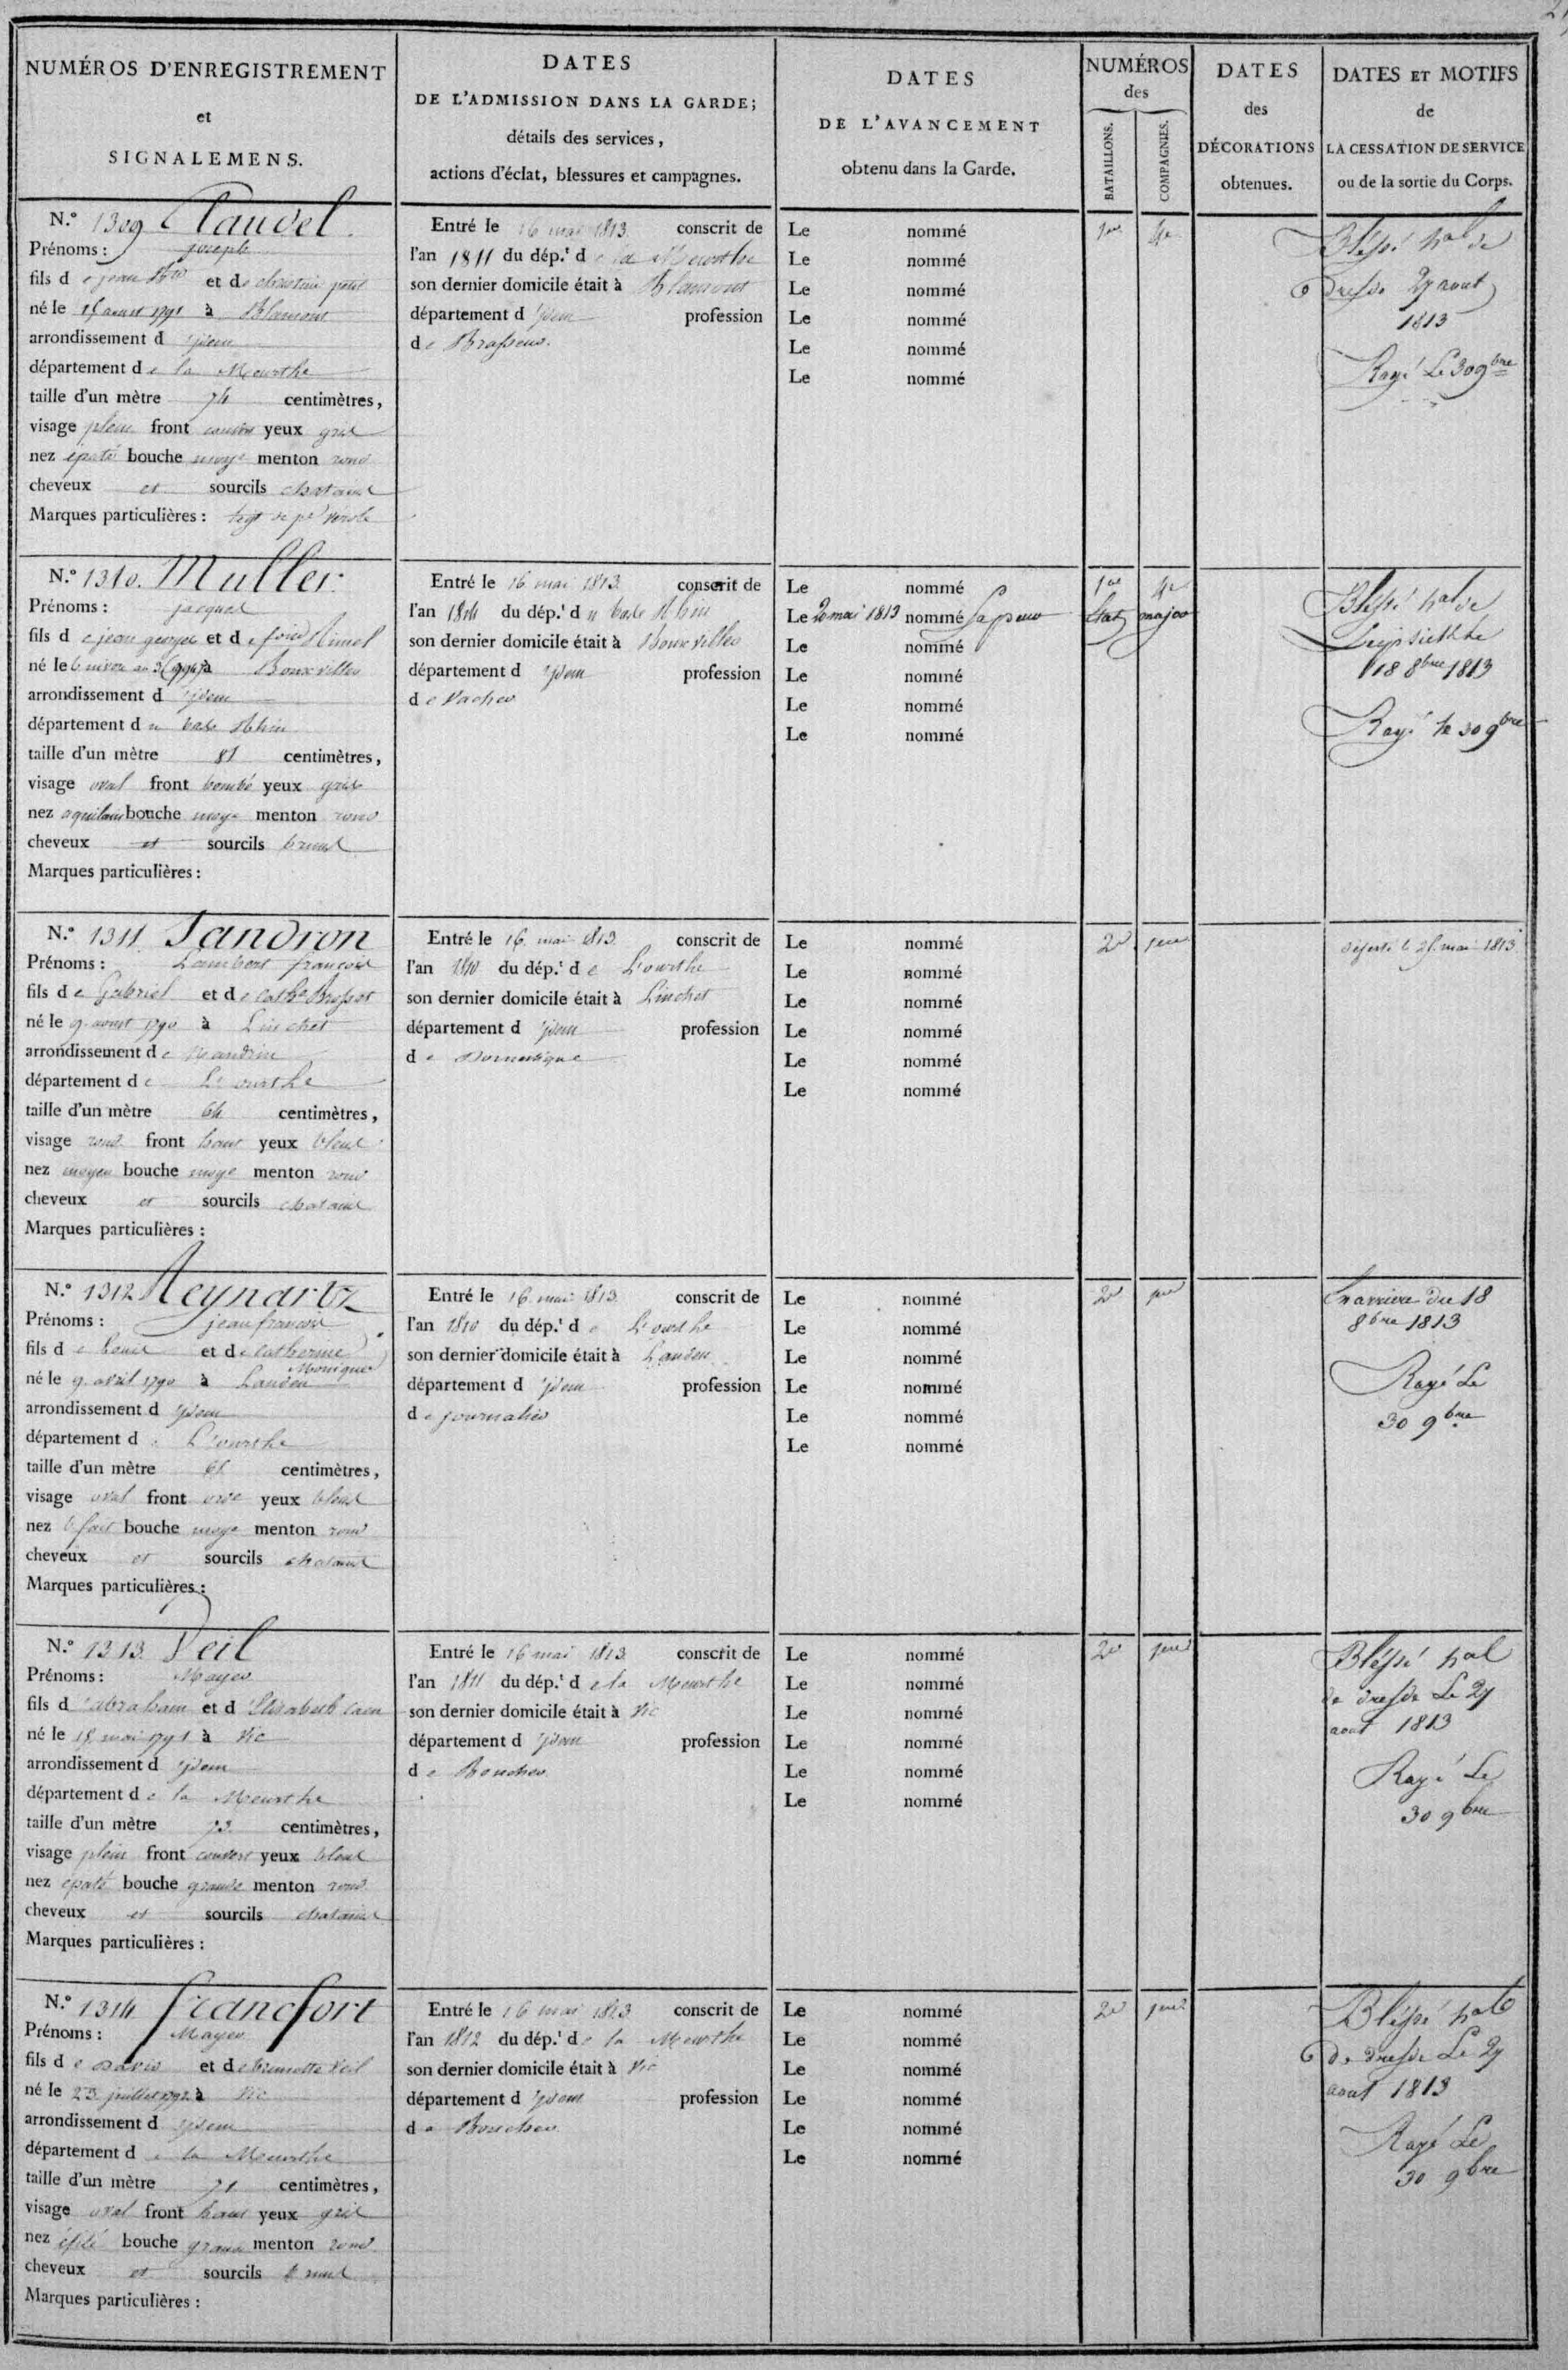 NUMÉROS D'ENREGISTREMENT
et
SIGNALEMENS.
DATES
DE L'ADMISSION DANS LA GARDE;
détails des services,
actions d'éclat, blessures et campagnes.
DATES
DE L'AVANCEMENT
obtenu dans la Garde.
NUMÉROS
des
BATAILLONS.
COMPAGNIES.
DATES
des
DÉCORATIONS
obtenues.
DATES ET MOTIFS
de
LA CESSATION DE SERVICE
ou de la sortie du Corps.
N.° 1309 Claudel
Prénoms : joseph
fils de jean et de petit
né le 15 aoust 1791 à Blamont
arrondissement d ydem
département de la Meurthe
taille d'un mètre 74 centimètres,
visage plein front couvert yeux gris
nez épaté bouche moye menton rond
cheveux et sourcils chatains
Marques particulières : verole
Entré le 16 mai 1813 conscrit de
l'an 1811 du dép.t de la Meurthe
son dernier domicile était à Blamont
département d ydem profession
de Brasseur.
Le nommé
Le nommé
Le nommé
Le nommé
Le nommé
Le nommé
1er 4e
Blessé hal de
dresde 27 aout
1813
Rayé Le 30 9bre
N.° 1310. Muller
Prénoms : jacques
fils de jean george et de
né le 6 nivose an 3 (1794) à Bouxviller
arrondissement d ydem
département du bas Rhin
taille d'un mètre 81 centimètres,
visage oval front bombé yeux gris
nez aquilain bouche moye menton rond
cheveux et sourcils bruns
Marques particulières :
Entré le 16 mai 1813 conscrit de
l'an 1814 du dép.t du bas Rhin
son dernier domicile était à Bouxviller
département d ydem profession
de Vacher
Le nommé
Le 20 mai 1813 nommé Sapeur
Le nommé
Le nommé
Le nommé
Le nommé
1er 4e
Etat major
Blessé hal de
Leipsickthe
18 8bre 1813
Rayé le 30 9bre
N.° 1311 Jandron
Prénoms : Lambert francois
fils de Gabriel et de cathe
né le 9 aoust 1790 à Linchet
arrondissement de Nandrin
département de L'ourthe
taille d'un mètre 64 centimètres,
visage rond front haut yeux bleus
nez moyen bouche moye menton rond
cheveux et sourcils chatains
Marques particulières :
Entré le 16 mai 1813 conscrit de
l'an 1810 du dép.t de L'ourthe
son dernier domicile était à Linchet
département d ydem profession
de Domestique
Le nommé
Le nommé
Le nommé
Le nommé
Le nommé
Le nommé
2e 1ere
déserté le 25 mai 1813
N.° 1312 Heynartz
Prénoms : jean francois
fils de louis et de catherine
Monique
né le 9 avril 1790 à Landen
arrondissement d ydem
département de L'ourthe
taille d'un mètre 65 centimètres,
visage oval front orde yeux bleus
nez b fait bouche moye menton rond
cheveux et sourcils chatains
Marques particulières :
Entré le 16 mai 1813 conscrit de
l'an 1810 du dép.t de L'ourthe
son dernier domicile était à Landen
département d ydem profession
de journalier
Le nommé
Le nommé
Le nommé
Le nommé
Le nommé
Le nommé
2e 1ere
En arriere du 18
8bre 1813
Rayé Le
30 9bre
N.° 1313 Veil
Prénoms : Mayer
fils d'abraham et d'Elisabeth caen
né le 15 mai 1791 à Vic
arrondissement d ydem
département de la Meurthe
taille d'un mètre 73 centimètres,
visage plein front couvert yeux bleus
nez épaté bouche grande menton rond
cheveux et sourcils chatains
Marques particulières :
Entré le 16 mai 1813 conscrit de
l'an 1811 du dép.t de la Meurthe
son dernier domicile était à Vic
département d ydem profession
de Boucher
Le nommé
Le nommé
Le nommé
Le nommé
Le nommé
Le nommé
2e 1ere
Blessé hal
de dresde Le 27
aout 1813
Rayé Le
30 9bre
N.° 1314 francfort
Prénoms : Mayer
fils de David et de brunette Veil
né le 23 juillet 1792 à Vic
arrondissement d ydem
département de la Meurthe
taille d'un mètre 71 centimètres,
visage oval front haut yeux gris
nez éfilé bouche grande menton rond
cheveux et sourcils bruns
Marques particulières :
Entré le 16 mai 1813 conscrit de
l'an 1812 du dép.t de la Meurthe
son dernier domicile était à Vic
département d ydem profession
de Boucher
Le nommé
Le nommé
Le nommé
Le nommé
Le nommé
Le nommé
2e 1ere
Blessé hal
de dresde Le 27
aout 1813
Rayé Le
30 9bre